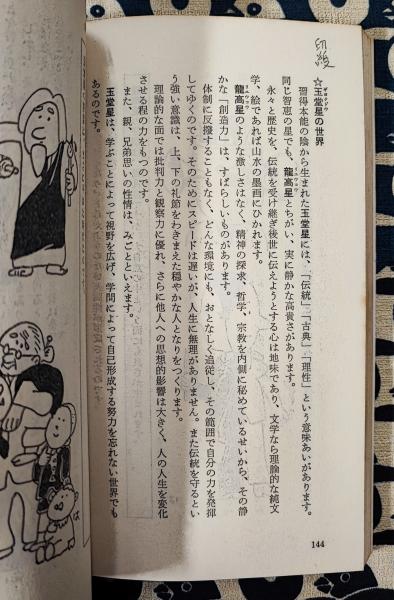 印綬
☆玉堂星の世界
ギョクドウセイ
習得本能の陰から生まれた玉堂星には、「伝統」「古典」「理性」という意味あいがあります。
同じ智恵の星でも、龍高星とちがい、実に静かな高貴さがあります。
永々と歴史を、伝統を受け継ぎ後世に伝えようとする心は地味であり、文学なら理論的な純文
学、絵であれば山水の墨画にひかれます。
龍高星のような激しさはなく、精神の探求、哲学、宗教を内側に秘めているせいから、その静
かな「創造力」は、すばらしいものがあります。
体制に反撥することもなく、どんな環境にも、おとなしく追従し、その範囲で自分の力を発揮
してゆくのです。そのためにスピードは遅いが、人生に無理がありません。また伝統を守るとい
う強い意識は、上、下の礼節をわきまえた穏やかな人となりをつくります。
理論的な面では批判力と観察力に優れ、さらに他人への思想的影響は大きく、人の人生を変化
させる程の力をもつのです。
また、親、兄弟思いの性情は、みごとといえます。
玉堂星は、学ぶことによって視野を広げ、学問によって自己形成する努力を忘れない世界でも
あるのです。
144